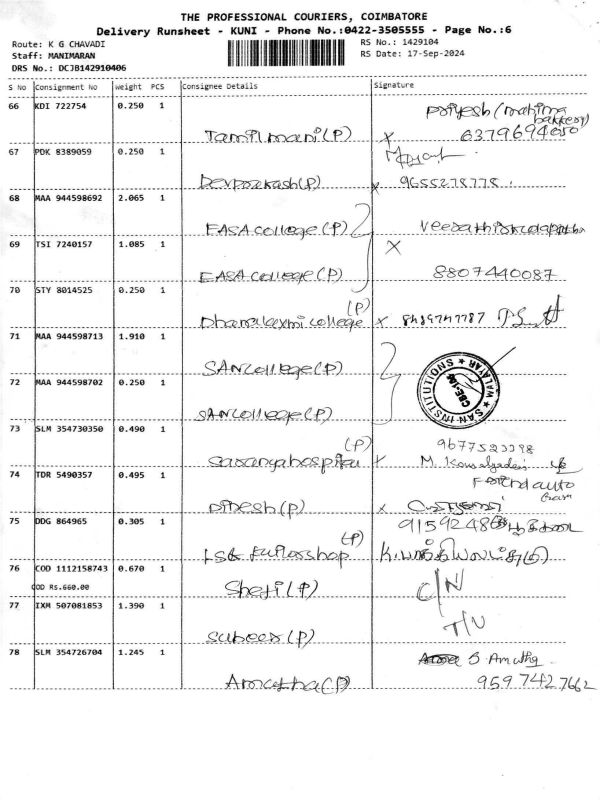 THE PROFESSIONAL COURIERS, COIMBATORE
Delivery Runsheet - KUNI - Phone No.:0422-3505555 - Page No.:6
Route: K G CHAVADI
RS No.: 1429104
Staff: MANIMARAN
RS Date: 17-Sep-2024
DRS No.: DCJB142910406
S No Consignment No Weight PCS Consignee Details Signature
66 KDI 722754 0.250 1
Priyesh (mahima bakkery)
Tamilmani (P) x 6379694050
67 PDK 8389059 0.250 1
Devprakash (P) x 9655278778.
68 MAA 944598692 2.065 1
EASA college (P)
69 TSI 7240157 1.085 1
x
EASA college (P) 8807440087
70 STY 8014525 0.250 1
(P)
Dhanalaxmi college x
71 MAA 944598713 1.910 1
SAN college (P)
72 MAA 944598702 0.250 1
SAN INSTITUTIONS
SAN college (P)
73 SLM 354730350 0.490 1
(P)
x M.
74 TDR 5490357 0.495 1
auto
Dinesh (P) x
75 DDG 864965 0.305 1
(P)
shop
76 COD 1112158743 0.670 1
COD Rs.660.00
Sheji (P) C/N
77 IXM 507081853 1.390 1
T/N
Subeer (P)
78 SLM 354726704 1.245 1
S. Amutha
Amutha (P) 9597427662